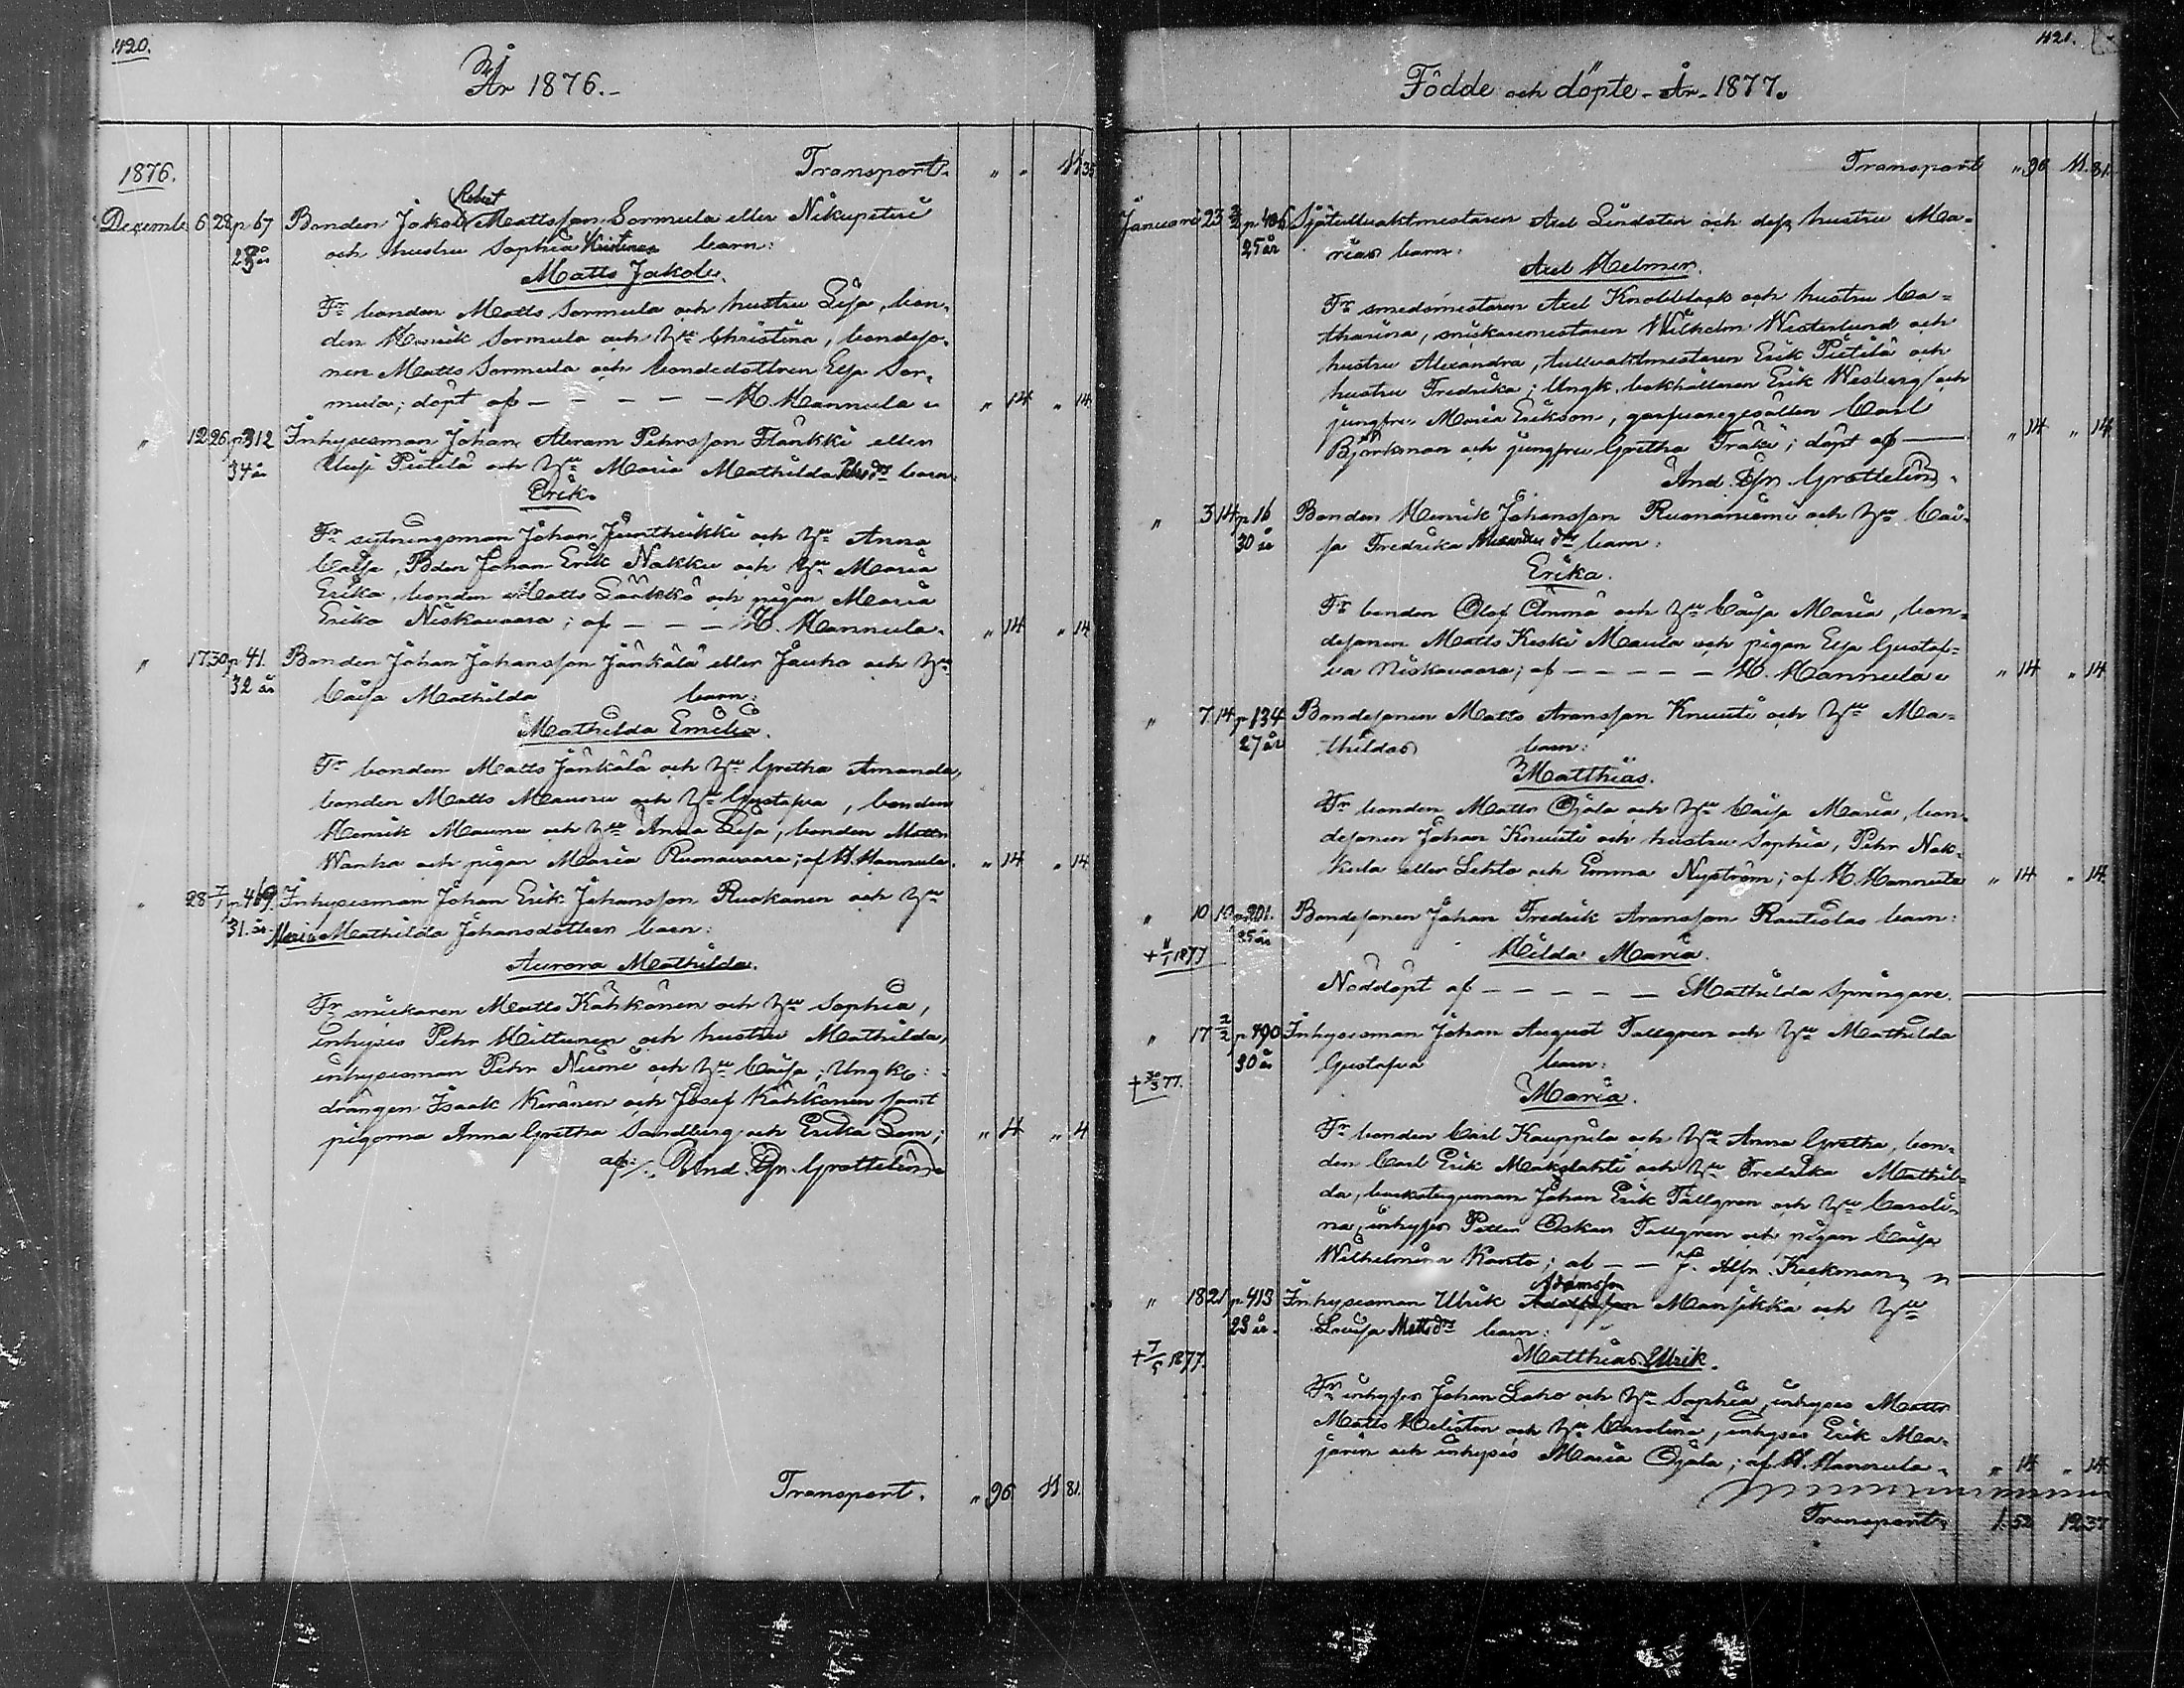 420.
År 1876.
1876.
Transport. " " 11 35
Decemb. 6 28 p 67 Bonden Jakob Robert Mattsson Sormula eller Nikupeteri
28 år och hustru Sophia Kristinas barn:
Matts Jakob.
Fr bonden Matts Sormula och hustru Lisa, bon-
den Henrik Sormula och Hu Christina, bondeso-
nen Matts Sormula och bondedottren Elsa Sor-
mula; döpt af — — — — — H. Hannula. " 14 " 14
" 12 26 p 312 Inhysesman Johan Abram Pehrsson Flänkki eller
34 år Pietilä och Hu Maria Mathilda barn:
Erik.
Fr sytningsman Johan Juntheikki och Hu Anna
Caisa, Bden Johan Erik Nakku och Hu Maria
Erika, bonden Matts Särkkä och pigan Maria
Erika Niskavaara; af — — — H. Hannula. " 14 " 14
" 17 30 p 41. Bonden Johan Johansson Jänkälä eller Jauho och Hu
32 år Caisa Mathilda barn:
Mathilda Emilia.
Fr bonden Matts Jänkälä och Hu Gretha Amanda,
bonden Matts Maunu och Hu Gustafva, bonden
Henrik Maunu och Hu Anna Lisa, bonden Matts
Wanha och pigan Maria Ruonavaara; af H. Hannula. " 14 " 14
" 28 7/1 p 469. Inhysesman Johan Erik Johansson Ruokanen och Hu
31. år. Maria Mathilda Johansdotters barn:
Aurora Mathilda.
Fr snickaren Matts Kähkönen och Hu Sophia,
inhyses Pehr Hiltunen och hustru Mathilda,
inhysesman Pehr Niemi och Hu Caisa; Ungk:
drängen Isaak Keränen och Josef Kähkönen samt
pigorna Anna Gretha Sandberg och Erika Lam; " 4 " 4
af: And. Gr. Grottelin
Transport. " 96 11 81.
421.
Födde och döpte - År - 1877.
Transport " 96 11. 81.
Januari 2 3 2/2 p 406 Sjötullvaktmästaren Axel Lindsten och dess hustru Ma-
25 år rias barn:
Axel Helmer.
Fr smedsmästaren Axel Knobblock och hustru Ca-
tharina, snickaremästaren Wilhelm Westerlund och
hustru Alexandra, tullvaktmästaren Erik Pietilä och
hustru Fredrika; Ungk. bokhållaren Erik Wesberg och
jungfru Maria Erikson, garfvaregesällen Carl
Björkman och jungfru Gretha Träki; döpt af — " 14 " 14
And. Gr. Grottelin.
" 3 14 p 16 Bonden Henrik Johansson Ruonaniemi och Hu Cai-
30 år sa Fredrika Alexanders dtr barn:
Erika.
Fr bonden Olof Ammä och Hu Caisa Maria, bon-
desonen Matts Keski Maula och pigan Elsa Gustaf-
va Niskavaara; af — — — — — H. Hannula " 14 " 14
" 7 14 p 134 Bondesonen Matts Aronsson Knuuti och Hu Ma-
27 år thildas barn:
Matthias.
Fr bonden Matts Ojala och Hu Caisa Maria, bon-
desonen Johan Knuuti och hustru Sophia, Pehr Nak-
kula eller Lehto och Emma Nyström; af H Hannula " 14 " 14
" 10 10 p 201. Bondesonen Johan Fredrik Aronsson Rautiolas barn:
25 år
+ 11/1 1877 Hilda Maria.
Nöddöpt af — — — — — Mathilda Springare.
" 17 2/2 p 490 Inhysesman Johan August Tallgren och Hu Mathilda
30 år Gustafva barn:
+ 30/3 77.
Maria.
Fr bonden Carl Kauppila och Hu Anna Gretha, bon-
den Carl Erik Mäkelahti och Hu Fredrika Mathil-
da, backstuguman Johan Erik Tallgren och Hu Caroli-
na, inhyses Petter Oskar Tallgren och pigan Caisa
Wilhelmina Kanto; af — — J. Alfr. Keckman,
" 18 21 p 413 Inhysesman Ulrik Adolfsson Adamsson Mansikka och Hu
23 år. Lovisa Matts dtr barn:
+ 7/5 1877. Matthias Ulrik.
Fr inhyses Johan Laho och Hu Sophia, inhyses Matts
Matts Heliston och Hu Carolina, inhyses Erik Ma-
järvi och inhyses Maria Ojala; af H. Hannula. " 14 " 14
Transport. 1. 52 12 37